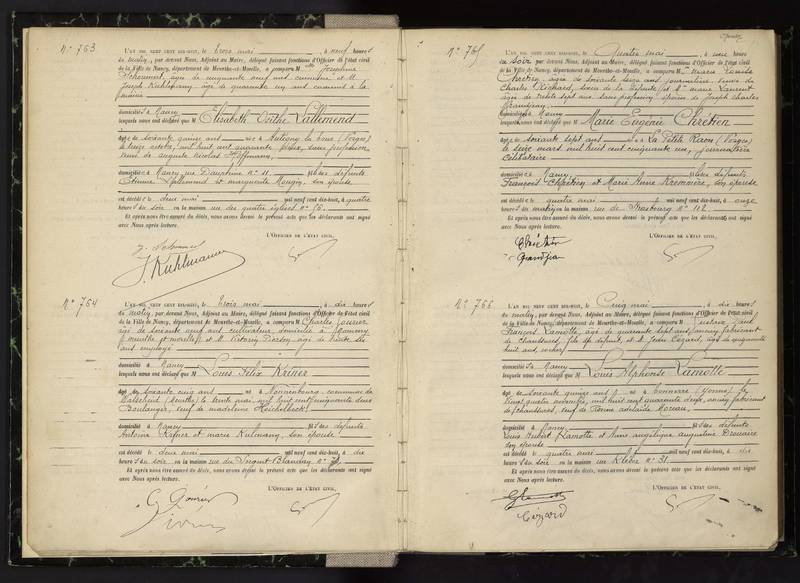 N° 763
L'AN MIL NEUF CENT DIX-HUIT, le trois mai, à neuf heures
du matin, par devant Nous, Adjoint au Maire, délégué faisant fonctions d'Officier de l'état civil
de la Ville de Nancy, département de Meurthe-et-Moselle, a comparu M Joséphine
âgée de cinquante neuf ans et M.
Joseph Kuhlmann, âgé de quarante un ans à la
domiciliés à Nancy
lesquels nous ont déclaré que M Elisabeth Lallemend
âgée de soixante quinze ans née à Autigny la tour (Vosges)
le treize octobre mil huit cent quarante deux, sans profession
veuve de Auguste Nicolas Hoffmann,
domiciliée à Nancy rue Dauphine n° 11 fille des défunts
Etienne Lallemend et Marguerite Mougin, son épouse
est décédée le deux mai mil neuf cent dix-huit, à quatre
heures du soir en la maison rue des quatre églises n° 76.
Et après nous être assuré du décès, nous avons dressé le présent acte que les déclarants ont signé
avec Nous après lecture.
L'OFFICIER DE L'ÉTAT CIVIL,
J. Kuhlmann
N° 764
L'AN MIL NEUF CENT DIX-HUIT, le trois mai, à dix heures
du matin, par devant Nous, Adjoint au Maire, délégué faisant fonctions d'Officier de l'état civil
de la Ville de Nancy, département de Meurthe-et-Moselle, a comparu M Charles
âgé de soixante neuf ans cultivateur, domicilié à
(Meurthe et Moselle), et M. Victorin âgé de trente
ans employé
domicilié à Nancy
lesquels nous ont déclaré que M Louis Félix
âgé de soixante cinq ans né à commune de
Walscheid (Meurthe) le trente mai mil huit cent cinquante deux
Boulanger, veuf de Madeleine
domicilié à Nancy fils des défunts
Antoine et Marie Kulmann, son épouse
est décédé le deux mai mil neuf cent dix-huit, à dix
heures du soir en la maison rue du Sergent Blandan n°
Et après nous être assuré du décès, nous avons dressé le présent acte que les déclarants ont signé
avec Nous après lecture.
L'OFFICIER DE L'ÉTAT CIVIL,
N° 765
L'AN MIL NEUF CENT DIX-HUIT, le Quatre mai, à une heure
du soir, par devant Nous, Adjoint au Maire, délégué faisant fonctions d'Officier de l'état civil
de la Ville de Nancy, département de Meurthe-et-Moselle, a comparu M Marie Louise
Chrétien, âgée de soixante seize ans journalière, veuve de
Charles Richard, soeur de la défunte, et M Marie Laurent
âgée de trente sept ans, sans profession, épouse de Joseph Charles
Grandjean,
domiciliées à Nancy
lesquels nous ont déclaré que M Marie Eugénie Chrétien
âgée de soixante sept ans née à La Petite Raon (Vosges)
le seize mars mil huit cent cinquante un, journalière
célibataire
domiciliée à Nancy fille des défunts
François Chrétien et Marie Anne son épouse
est décédée le quatre mai mil neuf cent dix-huit, à onze
heures du matin en la maison rue de Strasbourg n° 112
Et après nous être assuré du décès, nous avons dressé le présent acte que les déclarants ont signé
avec Nous après lecture.
L'OFFICIER DE L'ÉTAT CIVIL,
Chrétien
Grandjean
N° 766
L'AN MIL NEUF CENT DIX-HUIT, le Cinq mai, à dix heures
du matin, par devant Nous, Adjoint au Maire, délégué faisant fonctions d'Officier de l'état civil
de la Ville de Nancy, département de Meurthe-et-Moselle, a comparu M Gustave Paul
François Lamotte, âgé de quarante sept ans, ancien fabricant
de chaussures, fils du défunt, et M. Jean Cézard, âgé de cinquante
huit ans, cocher
domiciliés à Nancy
lesquels nous ont déclaré que M Louis Alphonse Lamotte
âgé de soixante quinze ans né à (Yonne) le
vingt quatre novembre mil huit cent quarante deux, ancien fabricant
de chaussures, veuf de Adélaïde Moreau,
domicilié à Nancy fils des défunts
Louis Hubert Lamotte et Anne Angélique Augustine
son épouse
est décédé le quatre mai mil neuf cent dix-huit, à dix
heures du soir en la maison rue Kléber n° 31
Et après nous être assuré du décès, nous avons dressé le présent acte que les déclarants ont signé
avec Nous après lecture.
L'OFFICIER DE L'ÉTAT CIVIL,
Cézard